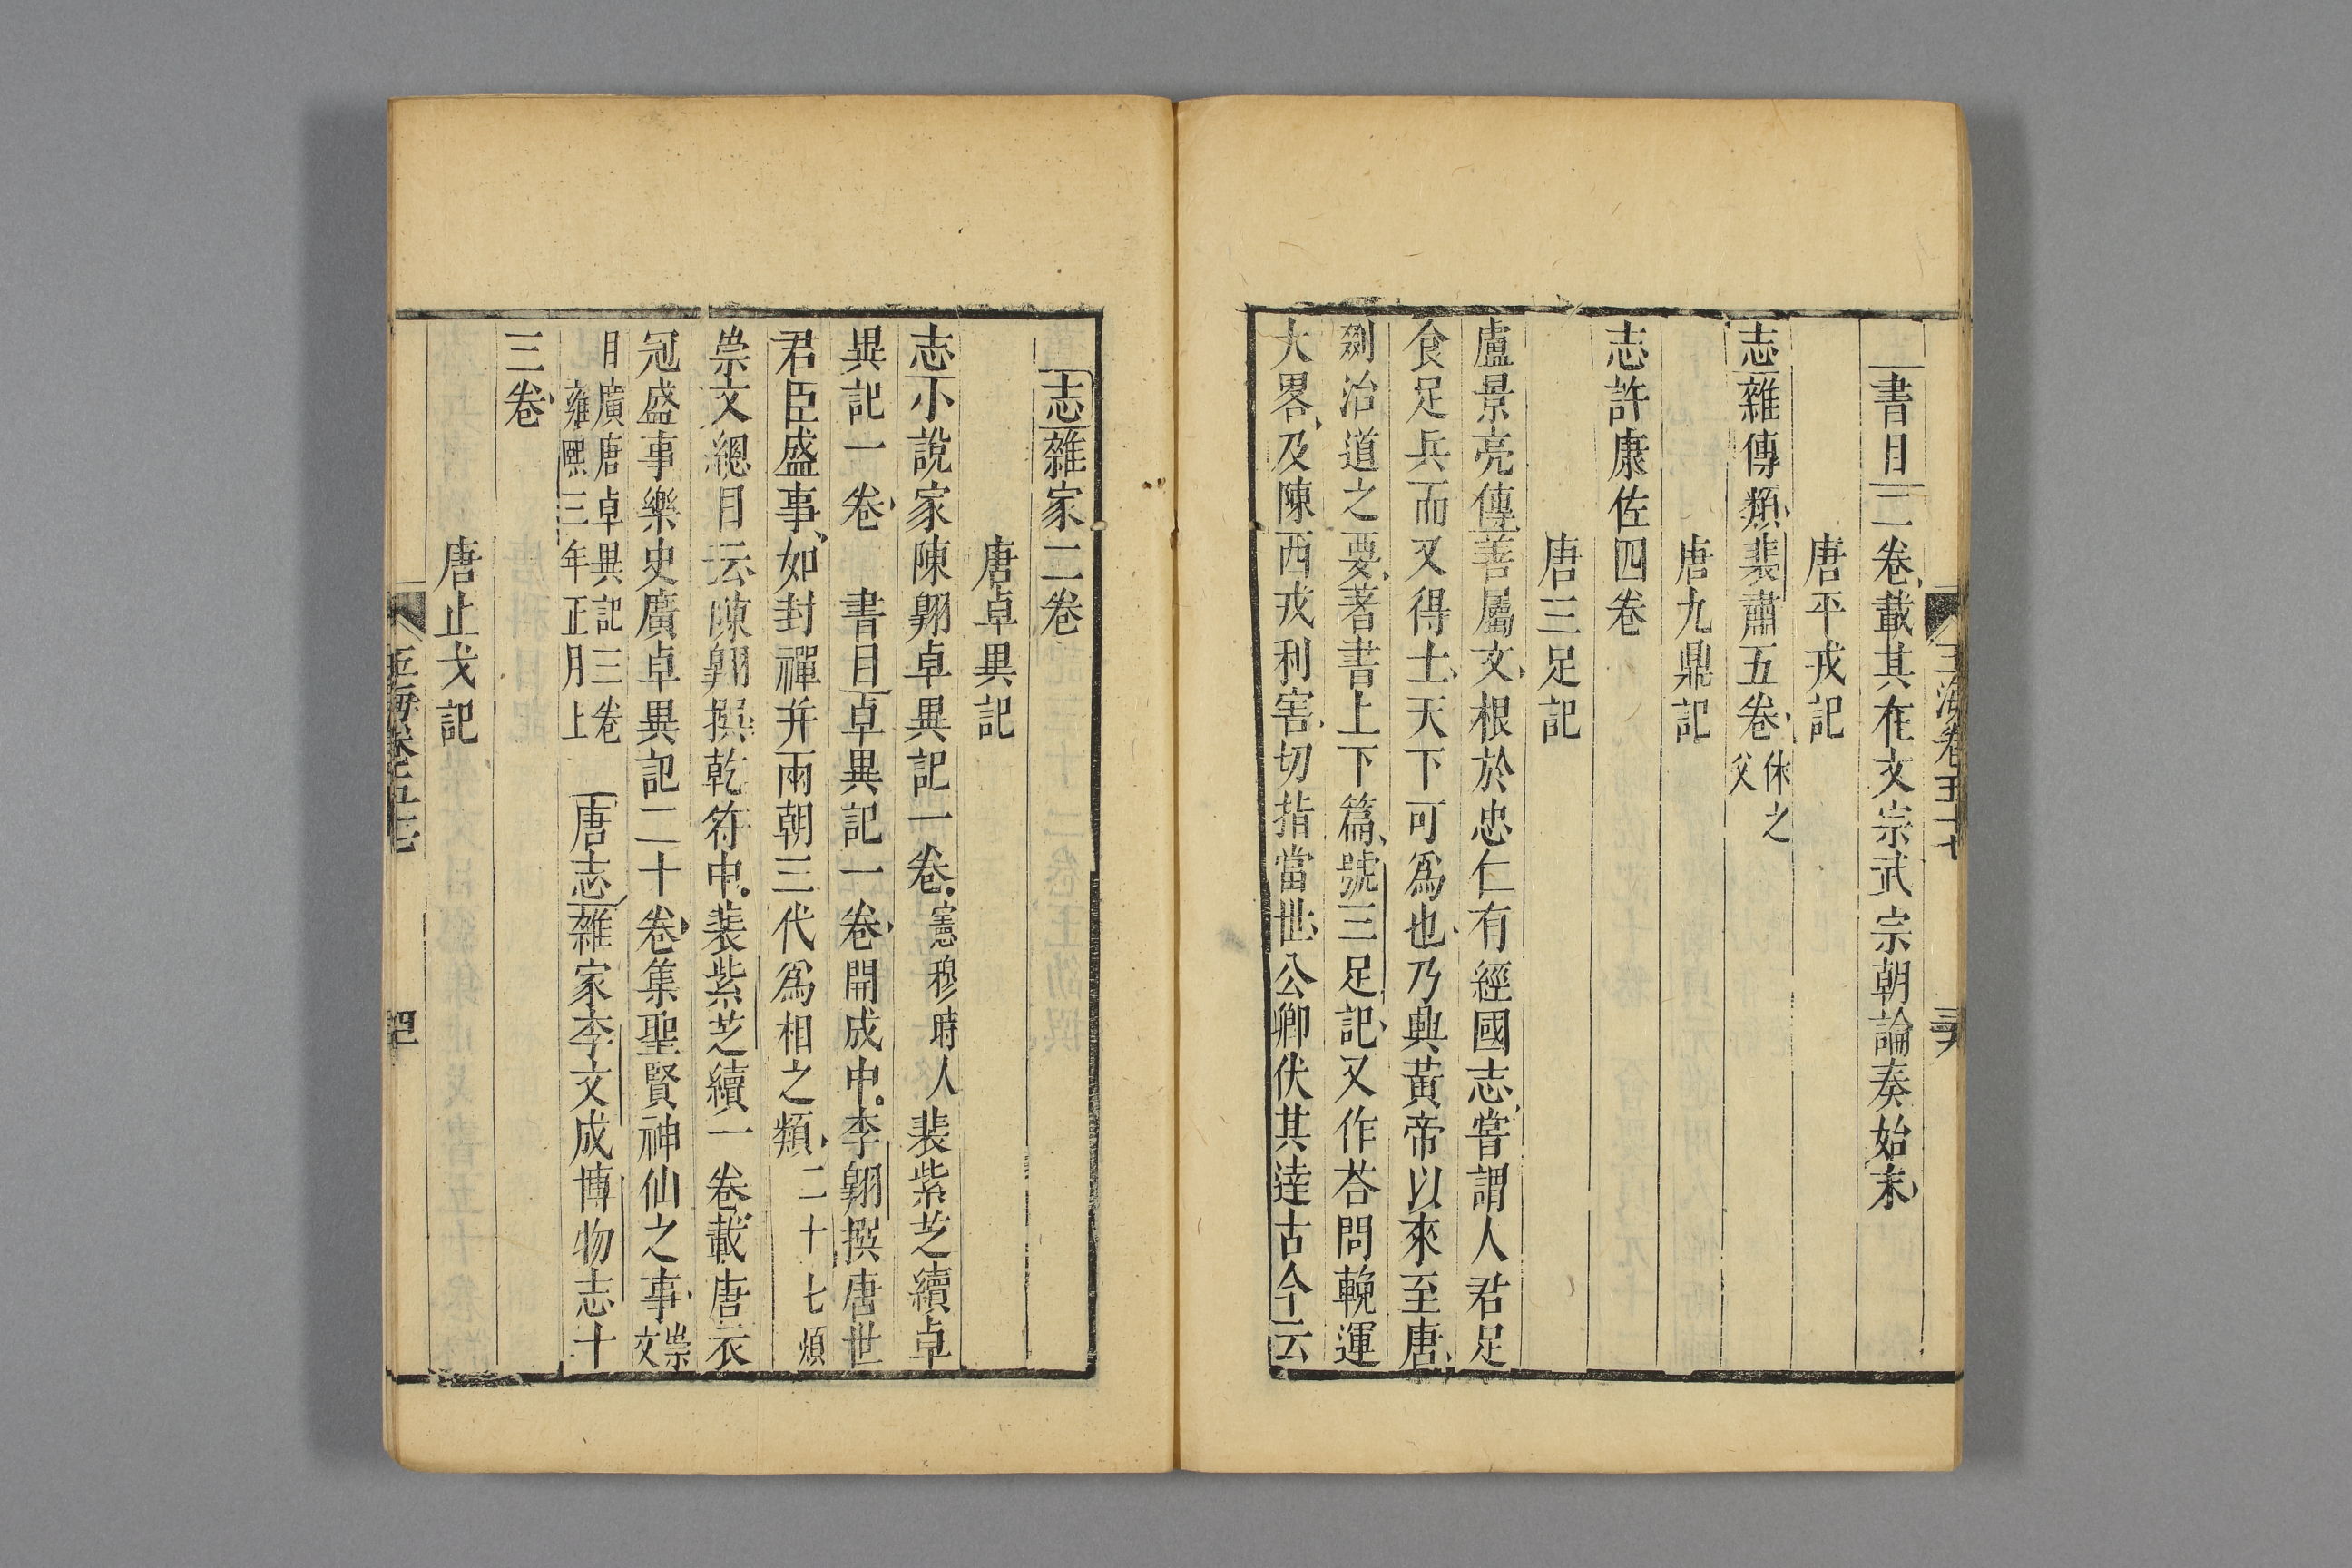 玉海卷五十七
書目二卷載其在文宗武宗朝論奏始末
唐平戎記
志雜傳類裴肅五卷休之父
唐九鼎記
志許康佐四卷
唐三足記
盧景亮傳善屬文根於忠仁有經國志嘗謂人君足
食足兵而又得士天下可爲也乃興黃帝以來至唐
劂治道之要著書上下篇號三足記又作荅問輓運
大畧及陳西戎利害切指當世公卿伏其達古今云
志雜家二卷
唐卓異記
志小說家陳翺卓異記一卷憲穆時人裴紫芝續卓
異記一卷 書目卓異記一卷開成中李翺撰唐世
君臣盛事如封禪并兩朝三代爲相之類二十七類
崇文總目云陳翺撰乾符中裴紫芝續一卷載唐衣
冠盛事樂史廣卓異記二十卷集聖賢神仙之事崇文
目廣唐卓異記三卷雍熙三年正月上 唐志雜家李文成博物志十
三卷
唐止戈記
玉海卷五十七